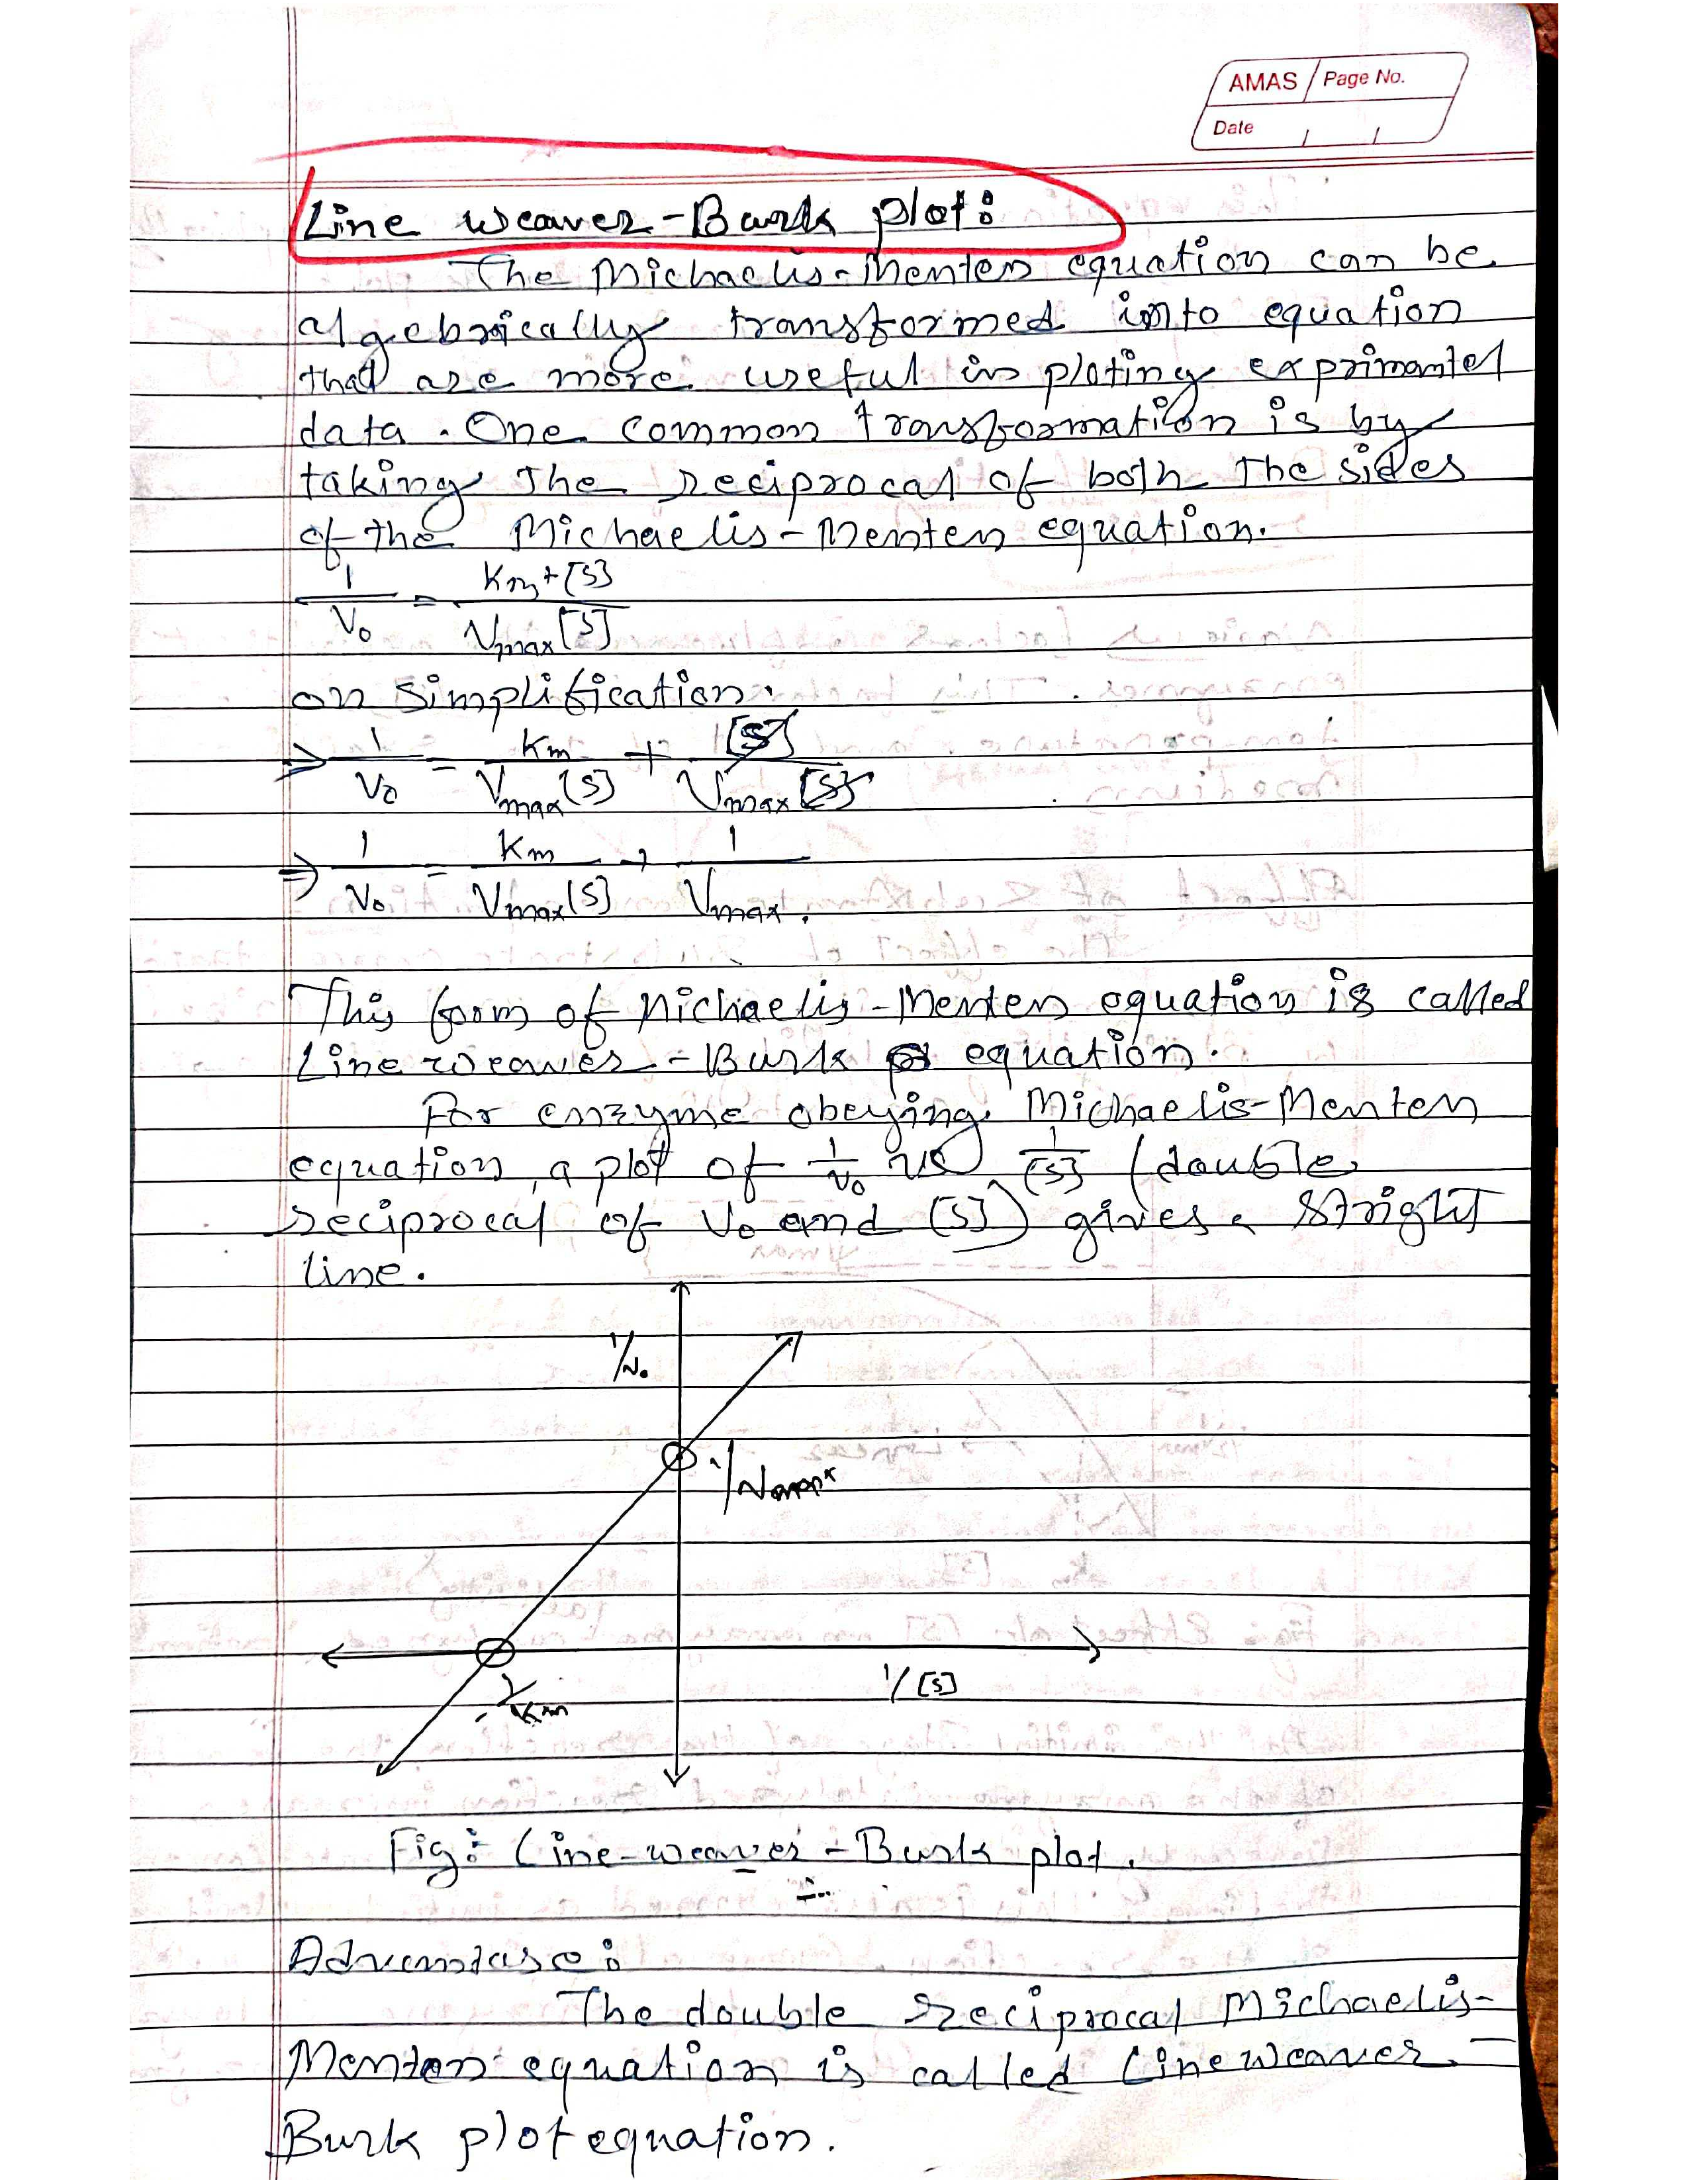 AMAS Page No.
Date / /
Line weaver-Burk plot:
The Michaelis-Menten equation can be
algebrically transformed into equation
that are more useful in ploting exprimantel
data. One common transformation is by
taking the reciprocal of both the sides
of the Michaelis-Menten equation.
1/V₀ = Km+[S]/Vmax[S]
on simplification.
⇒ 1/V₀ = Km/Vmax[S] + [S]/Vmax[S]
⇒ 1/V₀ = Km/Vmax[S] + 1/Vmax.
This form of Michaelis-Menten equation is called
Line weaver-Burk equation.
For enzyme obeying Michaelis-Menten
equation, a plot of 1/V₀ vs 1/[S] (double
reciprocal of V₀ and [S]) gives a stright
line.
1/V₀
1/Vmax
1/[S]
-1/Km
Fig: Line-weaver-Burk plot.
Advantage:
The double reciprocal Michaelis-
Menten equation is called Lineweaver-
Burk plot equation.